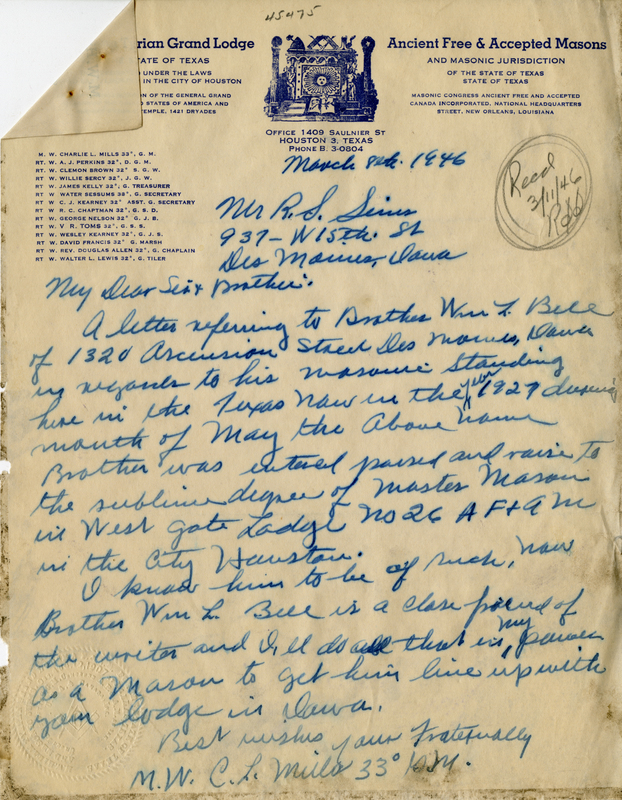 45475
rian Grand Lodge
TATE OF TEXAS
UNDER THE LAWS
IN THE CITY OF HOUSTON
ON OF THE GENERAL GRAND
D STATES OF AMERICA AND
TEMPLE, 1421 DRYADES
Ancient Free & Accepted Masons
AND MASONIC JURISDICTION
OF THE STATE OF TEXAS
STATE OF TEXAS
MASONIC CONGRESS ANCIENT FREE AND ACCEPTED
CANADA INCORPORATED, NATIONAL HEADQUARTERS
STREET, NEW ORLEANS, LOUISIANA
OFFICE 1409 SAULNIER ST
HOUSTON 3, TEXAS
PHONE B. 3-0804
M. W. CHARLIE L. MILLS 33°, G. M.
RT. W. A. J. PERKINS 32°, D. G. M.
RT. W. CLEMON BROWN 32° S. G. W.
RT. W. WILLIE SERCY 32°, J. G. W.
RT. W. JAMES KELLY 32°, G. TREASURER
RT. W. WATER SESSUMS 38°, G. SECRETARY
RT. W. C. J. KEARNEY 32° ASST. G. SECRETARY
RT. W. R. C. CHAPTMAN 32°, G. S. D.
RT. W. GEORGE NELSON 32° G. J. D.
RT. W. V R. TOMS 32°, G. S. S.
RT. W. WESLEY KEARNEY 32°, G. J. S.
RT. W. DAVID FRANCIS 32°, G. MARSH
RT. W. REV. DOUGLAS ALLEN 32°, G. CHAPLAIN
RT. W. WALTER L. LEWIS 32°, G. TILER
March 8th. 1946
Recd
3/11/46
Mr R. S. Sims
937- W 15th. St
Des Moines, Iowa
My Dear Sir & Brother.
A letter referring to Brother Wm L. Bell
of 1320 Ascension Street Des Moines, Iowa
in regards to his masonic Standing
here in the Texas Now in the year 1927 during
month of May the Above Name
Brother was entered passed and raise to
the sublime degree of Master Mason
in West gate Lodge No 26 A F & A M
in the City Houston.
I know him to be of such, Now
Brother Wm L. Bell is a close friend of
the writer and I,ll do all that in my power
as a Mason to get him line up with
your lodge in Iowa.
Best wishes your Fraternally
M. W. C. L. Mills 33° G. M.